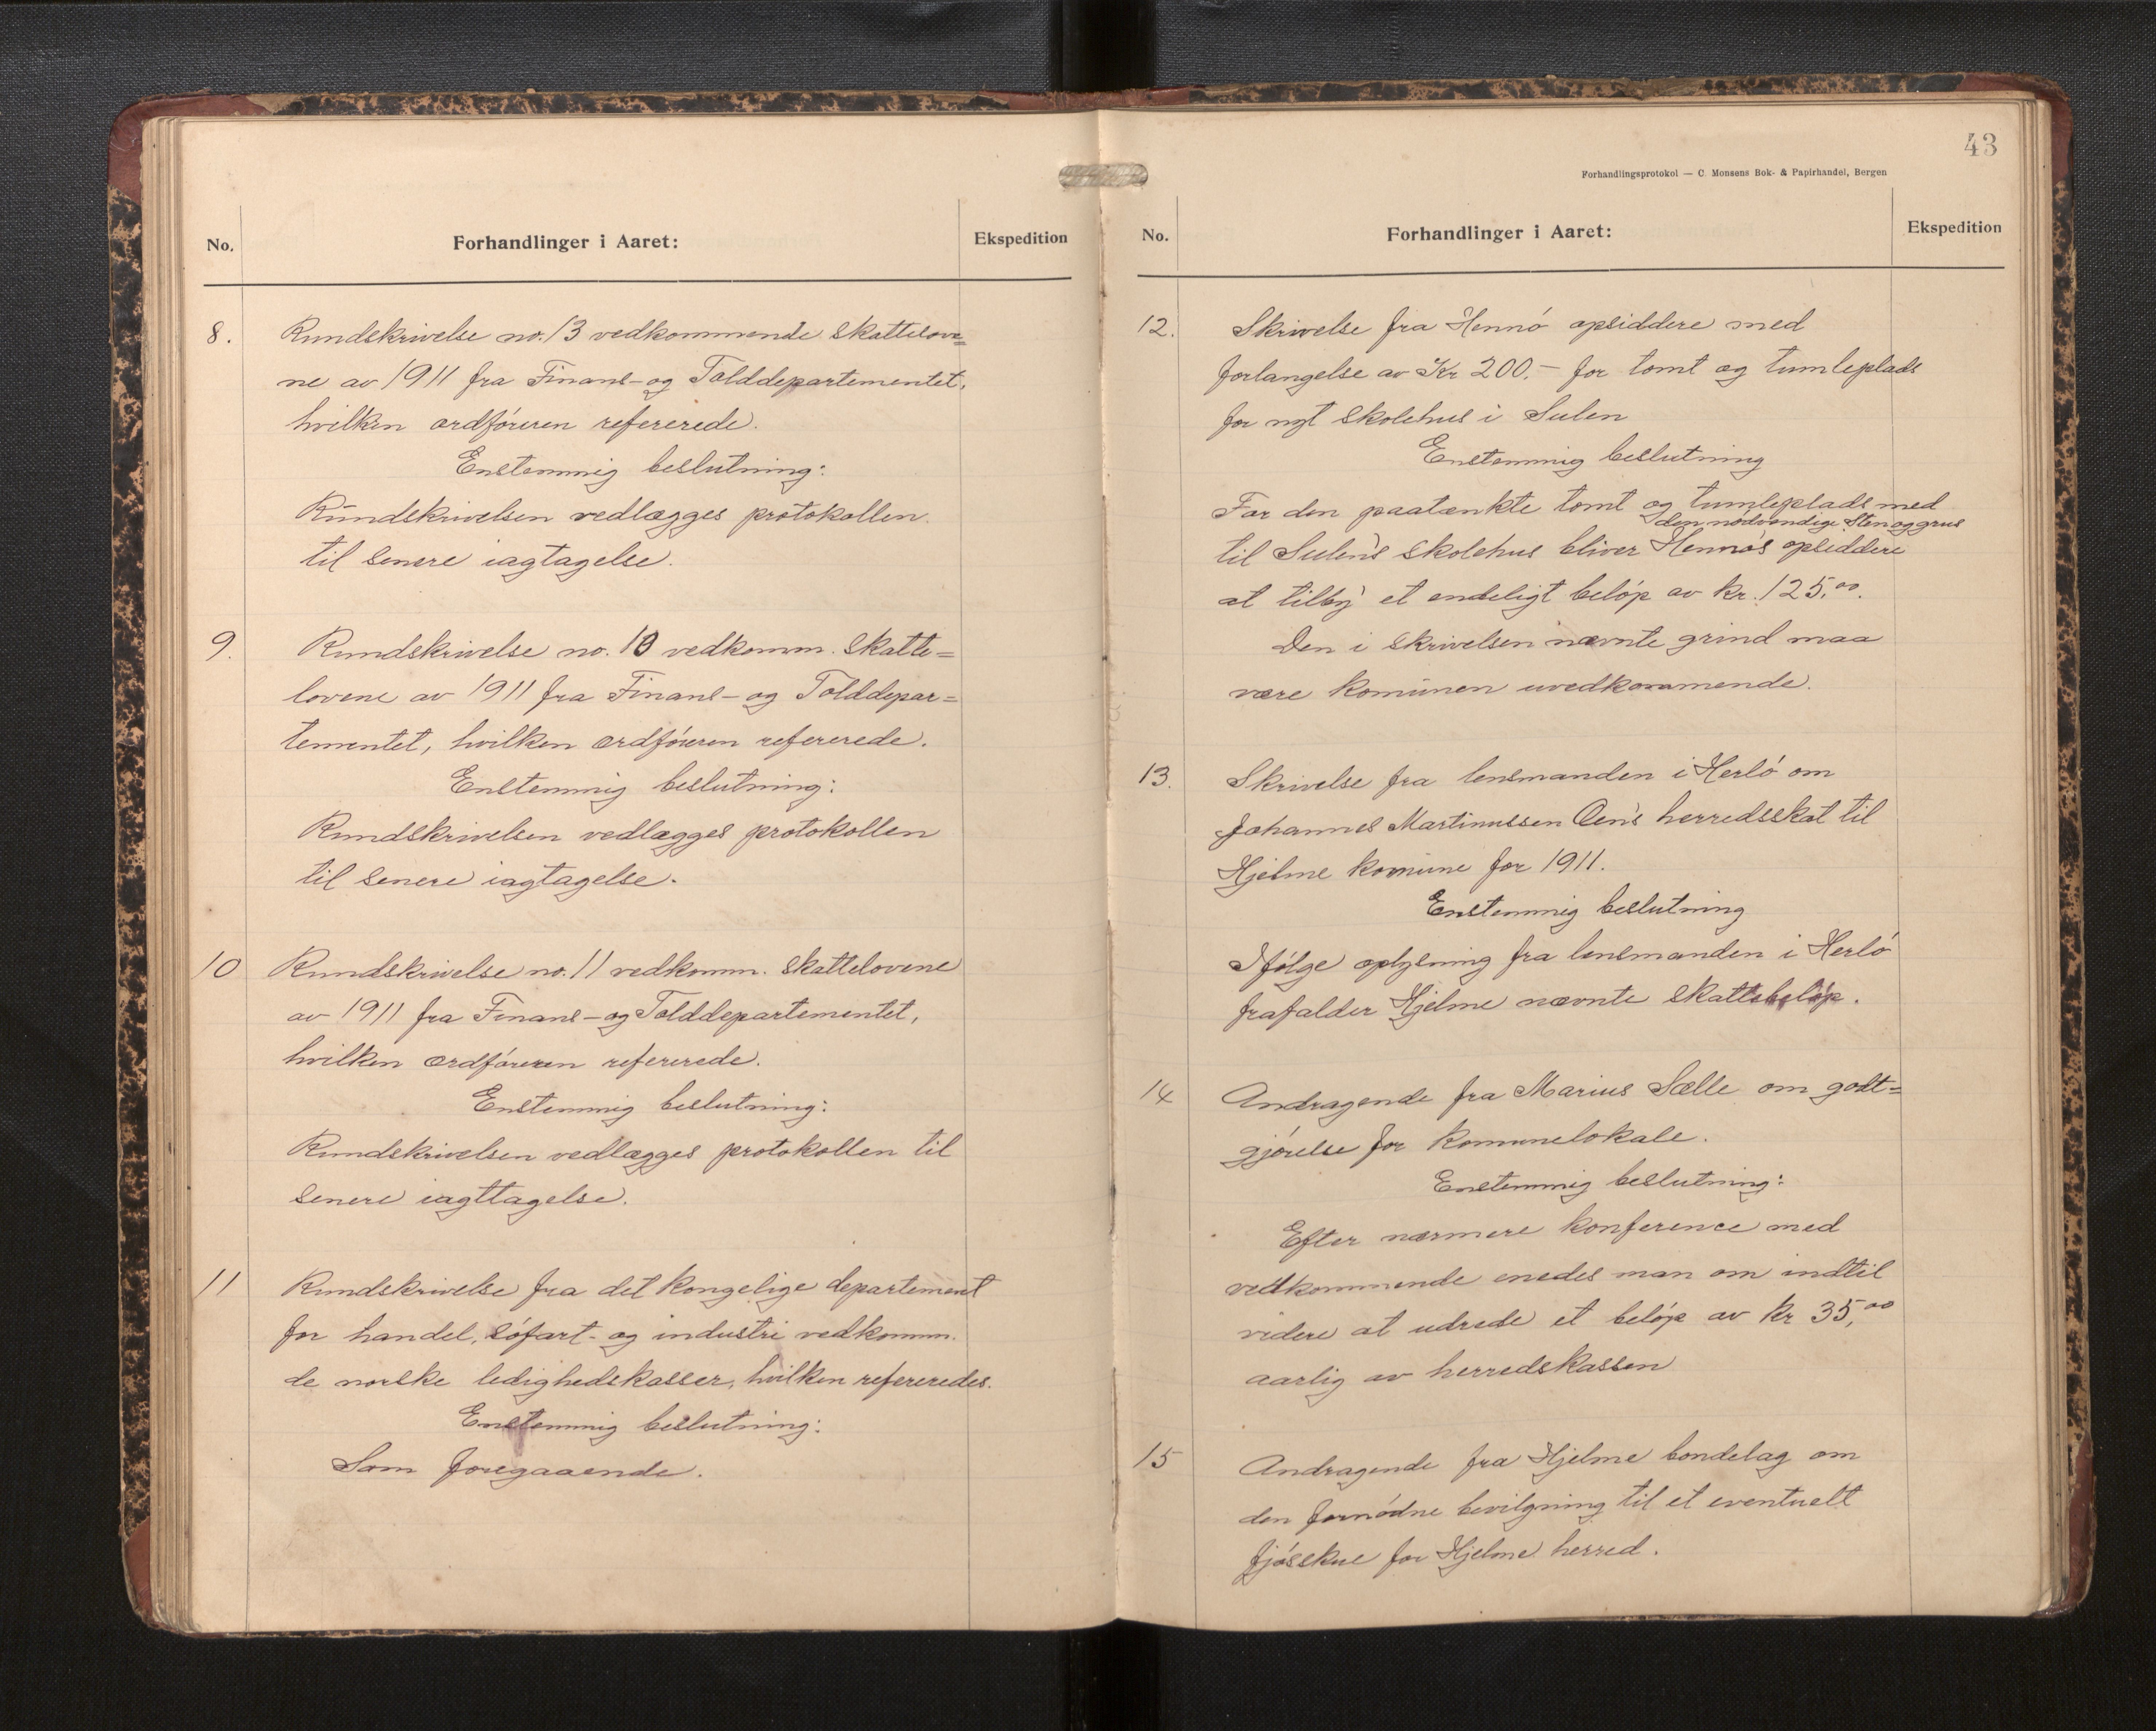 No.
Forhandlinger i Aaret:
Ekspedition
8. Rundskrivelse no. 13 vedkommende skattelove=
ne av 1911 fra Finans- og Tolddepartementet,
hvilken ordføreren refererede.
Enstemmig beslutning:
Rundskrivelsen vedlægges protokollen
til senere iagtagelse.
9. Rundskrivelse no. 10 vedkomm. skatte=
lovene av 1911 fra Finans- og Tolddepar=
tementet, hvilken ordføreren refererede.
Enstemmig beslutning:
Rundskrivelsen vedlægges protokollen
til senere iagtagelse.
10 Rundskrivelse no. 11 vedkomm. skattelovene
av 1911 fra Finans- og Tolddepartementet,
hvilken ordføreren refererede.
Enstemmig beslutning:
Rundskrivelsen vedlægges protokollen til
senere iagttagelse.
11 Rundskrivelse fra det kongelige departement
for handel, søfart- og industri vedkomm.
de norske ledighedskasser, hvilken refereredes.
Enstemmig beslutning:
Som foregaaende.
43
Forhandlingsprotokol — C. Monsens Bok- & Papirhandel, Bergen
No.
Forhandlinger i Aaret:
Ekspedition
12. Skrivelse fra Hennø opsiddere med
forlangelse av Kr 200.- for tomt og tumleplads
for nyt skolehus i Sulen
Enstemmig beslutning
For den paatænkte tomt og tumleplads med
den nødvendige Sten og grus
til Sulens skolehus bliver Hennøs opsiddere
at tilby et endeligt beløp av kr. 125,00.
Den i skrivelsen nævnte grind maa
være komunen uvedkommende.
13. Skrivelse fra lensmanden i Herlø om
Johannes Martinussen Øens herredsskat til
Hjelme komune for 1911.
Enstemmig beslutning
Ifølge oplysning fra lensmanden i Herlø
frafalder Hjelme nævnte skattebeløp.
14 Andragende fra Marius Sælle om godt=
gjørelse for komunelokale.
Enstemmig beslutning:
Efter nærmere konference med
vedkommende enedes man om indtil
videre at udrede et beløp av kr 35,00
aarlig av herredskassen
15 Andragende fra Hjelme bondelag om
den fornødne bevilgning til et eventuelt
fjøsskue for Hjelme herred.